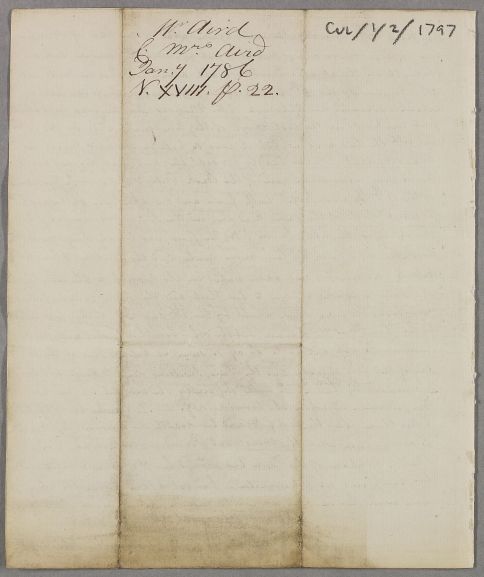 Wr Aird
C Mrs Aird
Jany 1786
V. XVIII. p. 22.
CUL/1/2/1797